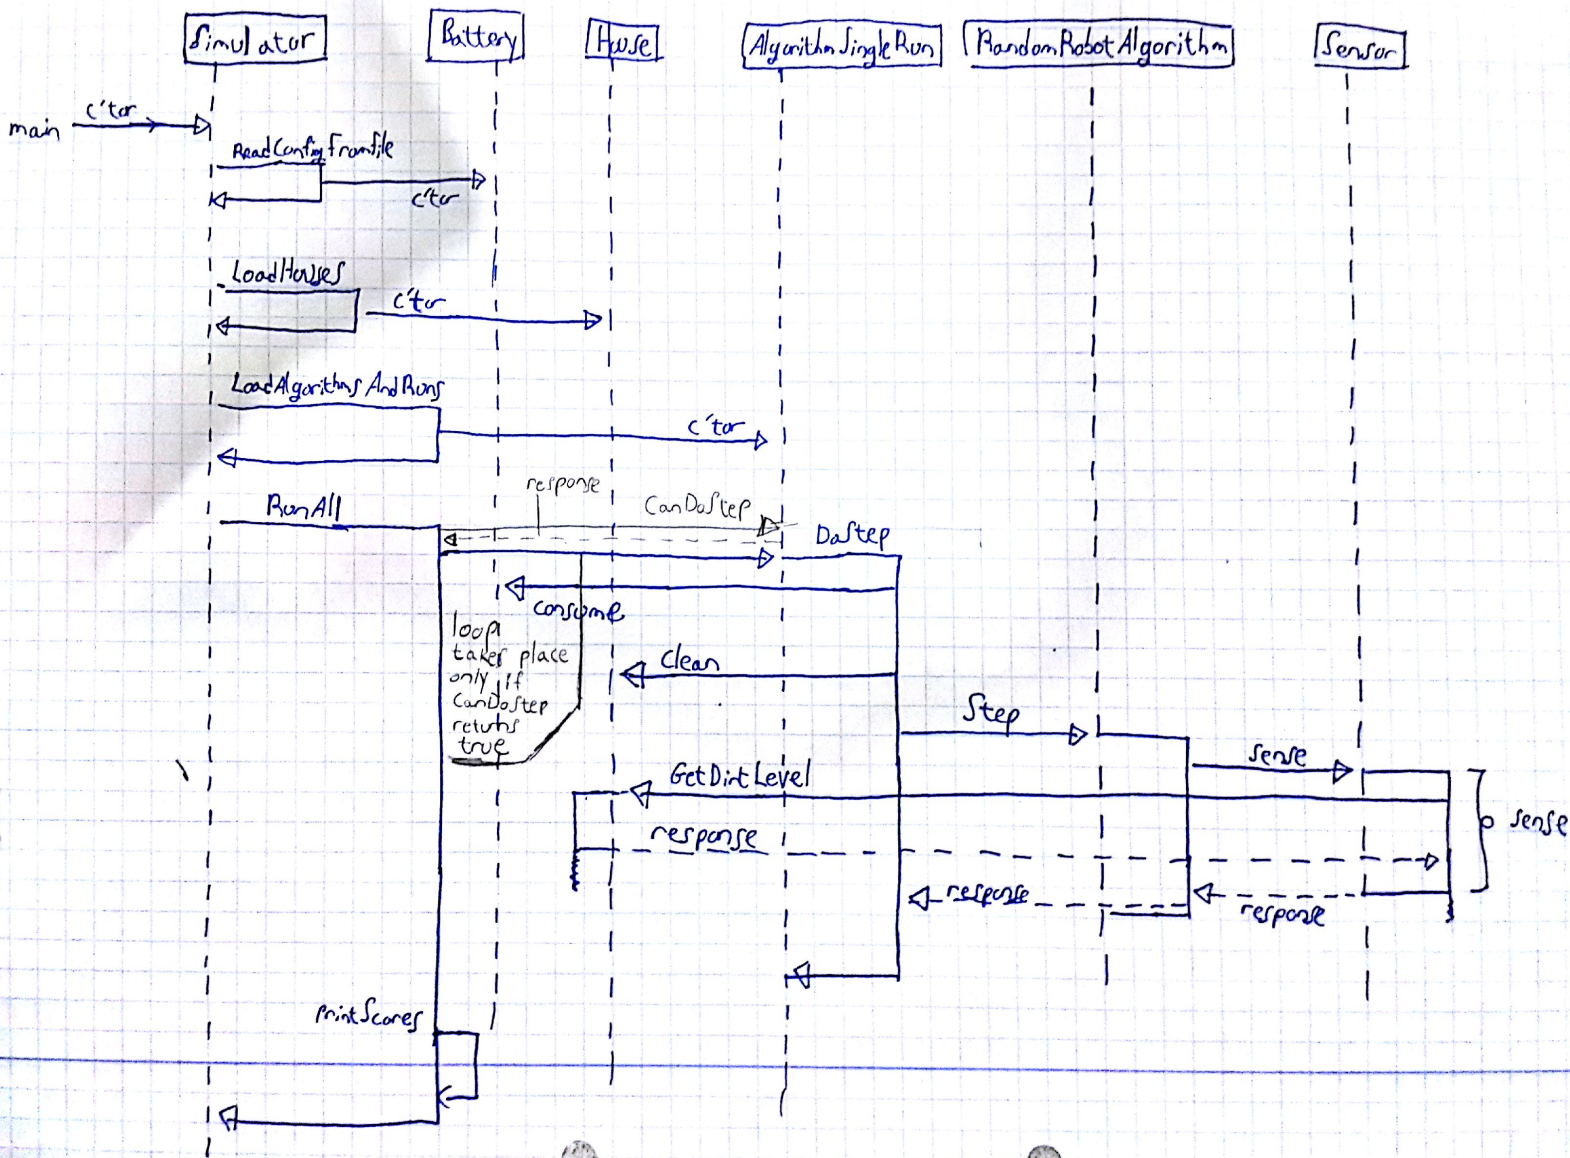 Simulator
Battery
House
AlgorithmSingleRun
RandomRobotAlgorithm
Sensor
main
c'tor
ReadConfigFromfile
c'tor
LoadHouses
c'tor
LoadAlgorithmsAndRuns
c'tor
RunAll
response
CanDoStep
DoStep
consume
loop
takes place
only if
CanDoStep
returns
true
Clean
Step
sense
GetDirtLevel
sense
response
response
response
printScores